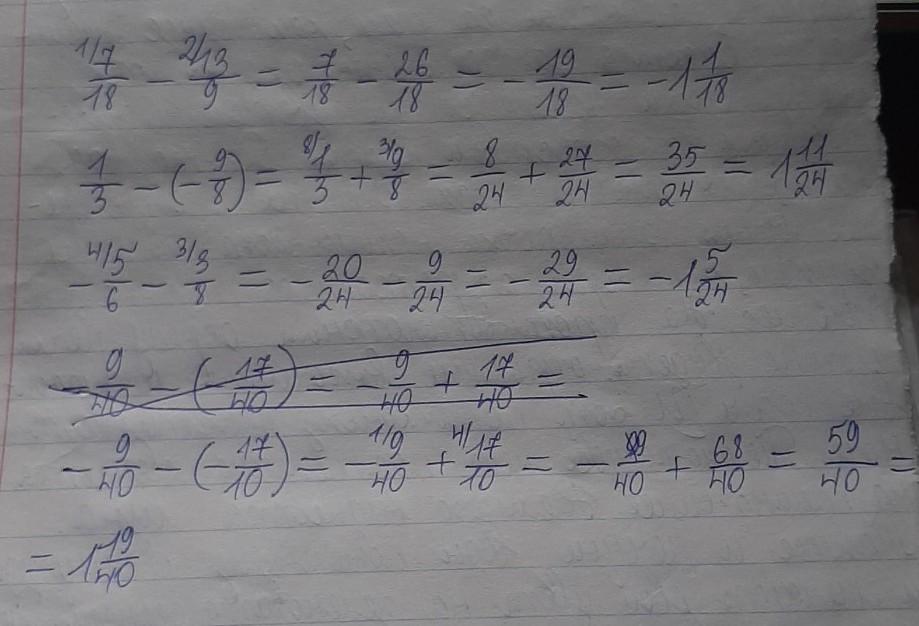 1/7/18 − 2/13/9 = 7/18 − 26/18 = −19/18 = −1 1/18
1/3 − (−9/8) = 8/1/3 + 3/9/8 = 8/24 + 27/24 = 35/24 = 1 11/24
−4/5/6 − 3/3/8 = −20/24 − 9/24 = −29/24 = −1 5/24
−9/40 − (−17/40) = −9/40 + 17/40 =
−9/40 − (−17/10) = −1/9/40 + 4/17/10 = −9/40 + 68/40 = 59/40 =
= 1 19/40